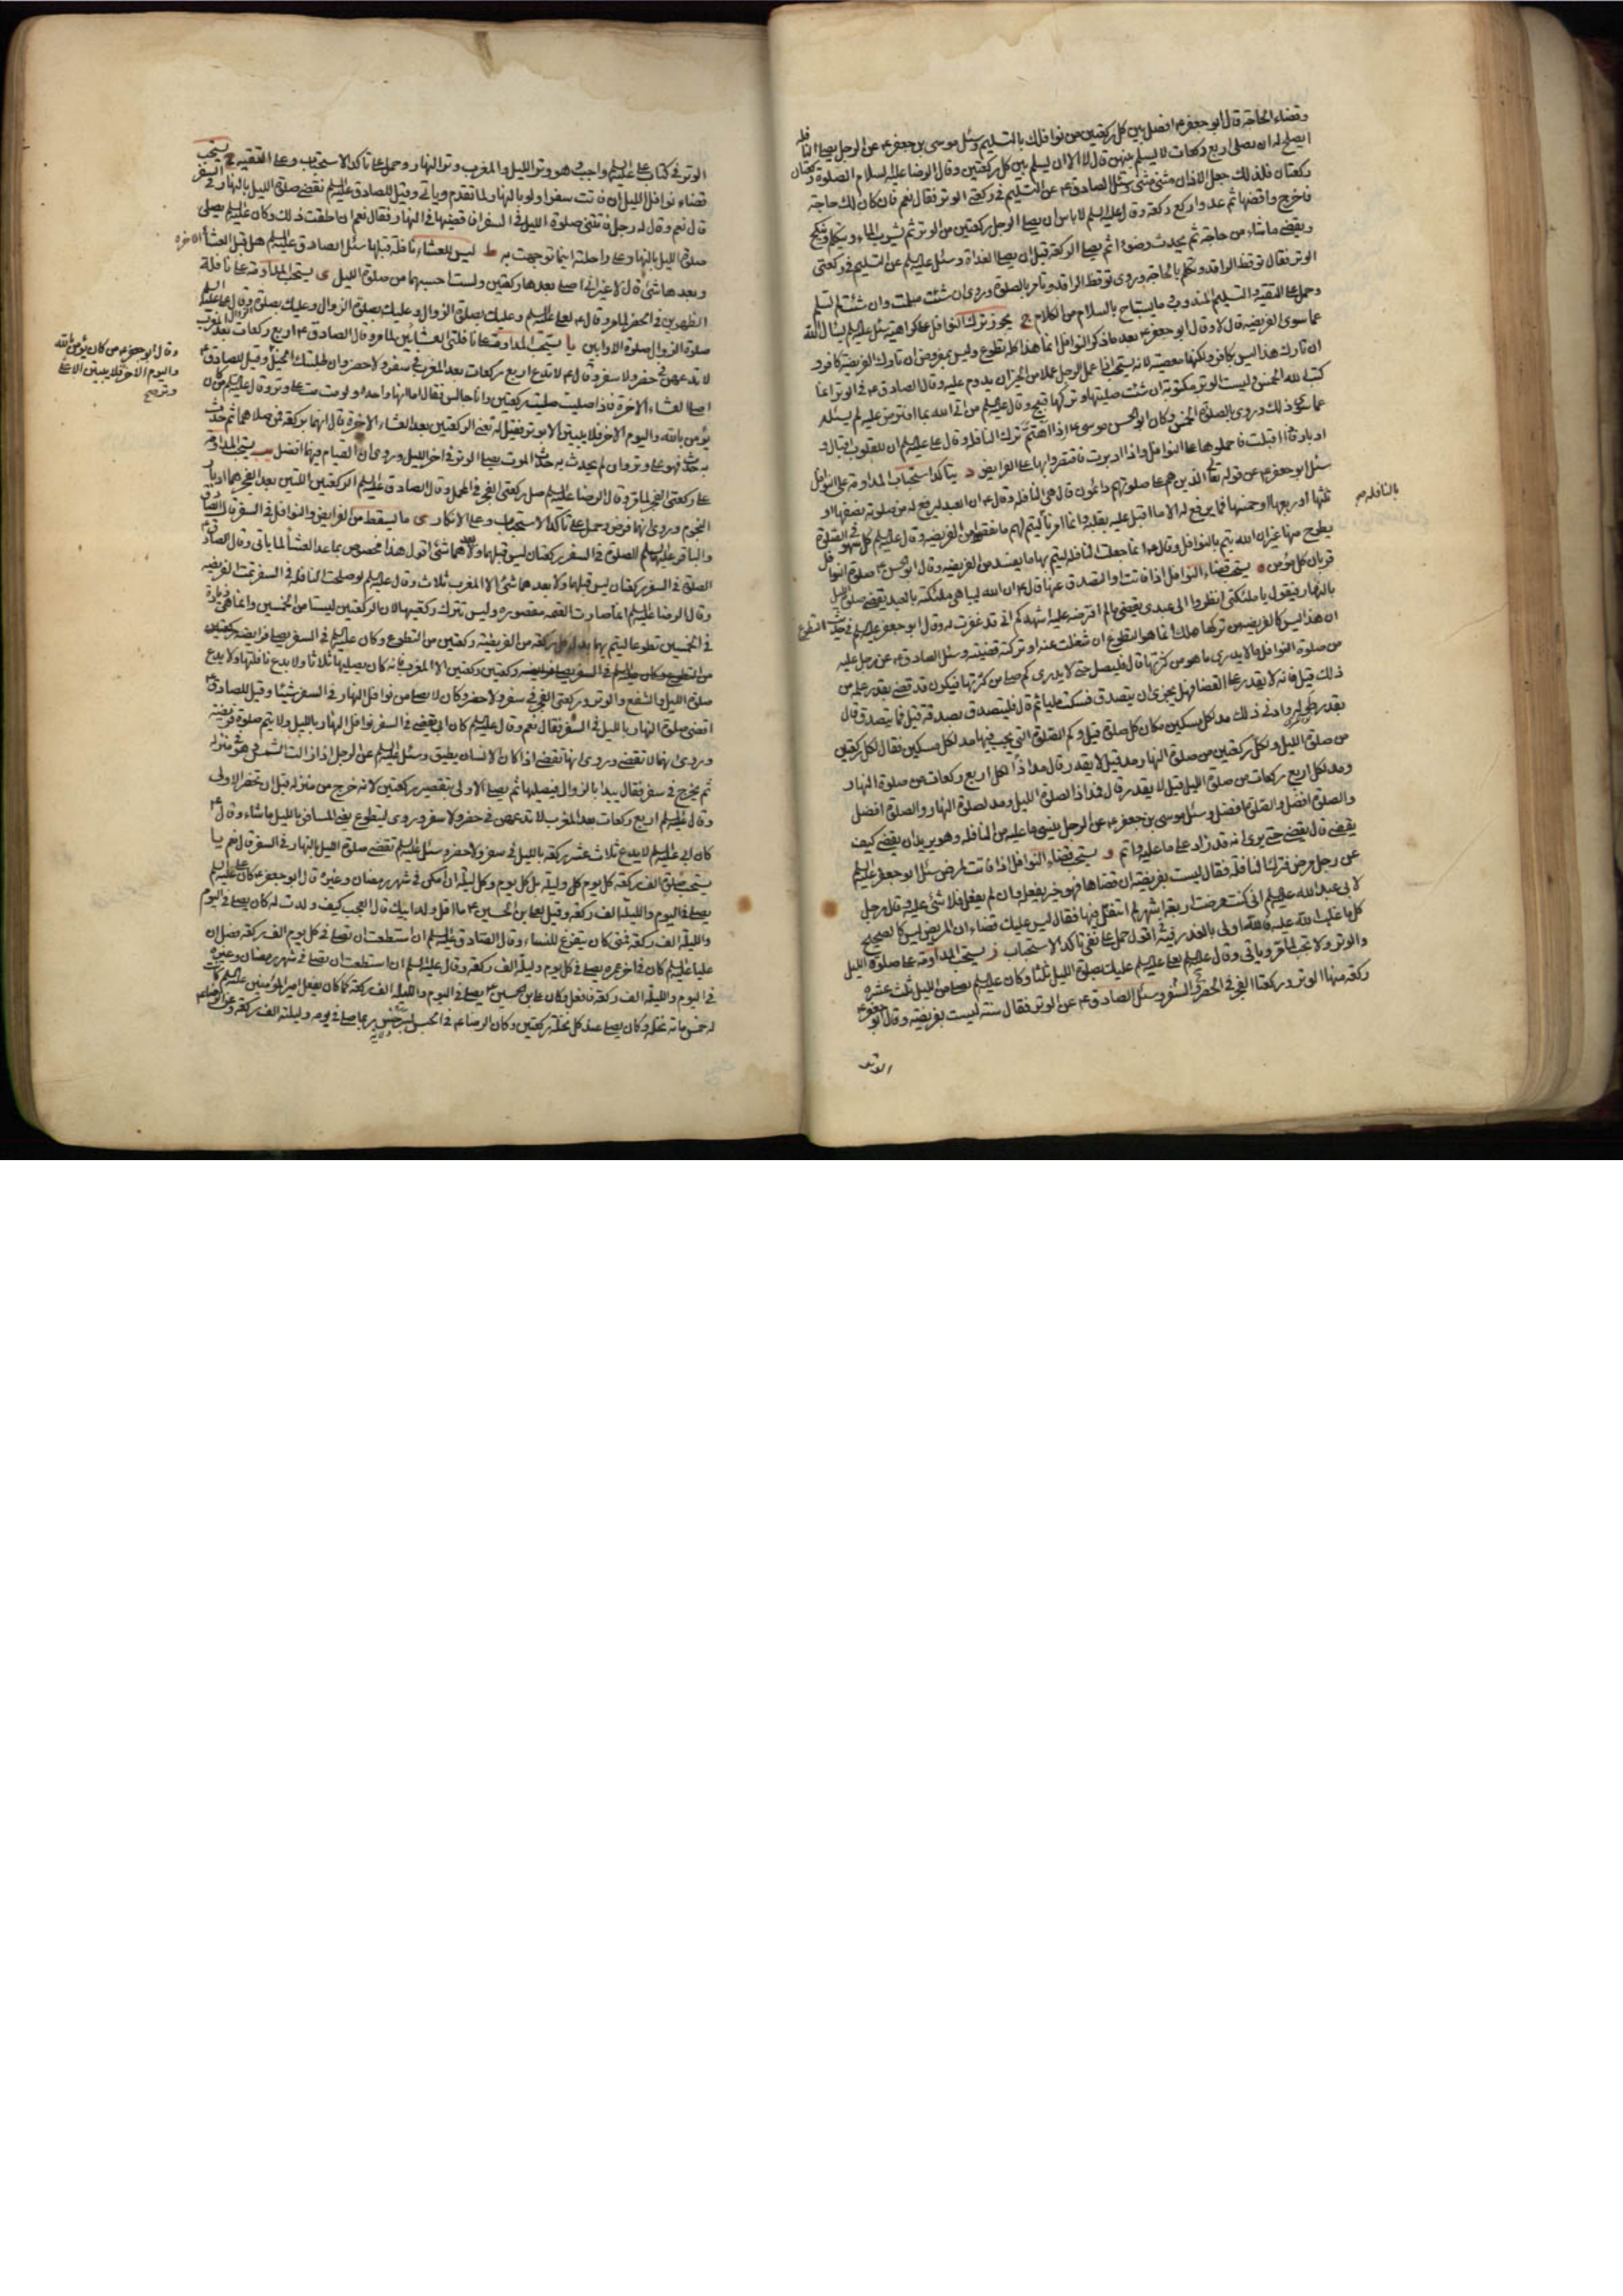 وقضاء الحاجة قال ابو جعفر ع افصل بين كل ركعتين من نوافلك بالتسليم وسئل موسى بن جعفر ع عن الرجل يصلى النافلة
ايصلح له ان يصلى اربع ركعات لا يسلم بينهن قال لا الا ان يسلم بين كل ركعتين وقال الرضا عليه السلام الصلوة ركعتان
ركعتان فلذلك جعل الاذان مثنى مثنى وسئل الصادق ع عن التسليم فى ركعتى الوتر فقال نعم فان كان لك حاجة
فاخرج واقضها ثم عد واركع ركعة وقال عليه السلم لا باس ان يصلى الرجل ركعتين من الوتر ثم يشرب الماء ويتكلم وينكح
ويقضى ما شاء من حاجته ثم يحدث وضوءا ثم يصلى الركعة قبل ان يصلى الغداة وسئل عليه السلم عن التسليم فى ركعتى
الوتر فقال توقظ الراقد وتكلم بالحاجة وروى توقظ الراقد وتامر بالصلوة وروى ان شئت سلمت وان شئت لم تسلم
وحمل على التقية والتسليم المندوب وما يستباح بالسلام من الكلام ج يجوز ترك النوافل على كراهية سئل عليه السلم يسال الله
عما سوى الفريضة قال لا وقال ابو جعفر ع بعد ما ذكر النوافل انما هذا كله تطوع وليس بمفروض ان تارك الفريضة كافر و
ان تارك هذا ليس بكافر ولكنها معصية لانه يستحب اذا عمل الرجل عملا من الخير ان يدوم عليه وقال الصادق ع فى الوتر انما
كتب الله الخمس وليست الوتر مكتوبة ان شئت صليتها وتركها قبيح وقال عليه السلم من اتى الله بما افترض عليه لم يسئله
عما سوى ذلك وروى بالصلوة الخمس وكان ابو الحسن موسى ع اذا اهتم ترك النافلة وقال على عليه السلم ان للقلوب اقبالا و
ادبارا فاذا اقبلت فاحملوها على النوافل واذا ادبرت فاقتصروا بها على الفرايض د يتاكد استحباب المداومة على النوافل
سئل ابو جعفر ع عن قوله تع الذين هم على صلوتهم دائمون قال هى النافلة وقال ع ان العبد ليرفع له من صلوته نصفها او
ثلثها او ربعها او خمسها فما يرفع له الا ما اقبل عليه بقلبه وانما امرنا ليتم لهم ما نقصوا من الفريضة وقال عليه السلم كل سهو فى الصلوة
بالنافلة صح
يطرح منها غير ان الله يتم بالنوافل وقال ع انما جعلت النافلة ليتم بها ما يفسد من الفريضة وقال ابو الحسن ع صلوة النوافل
قربان كل مؤمن ه يستحب قضاء النوافل اذا فاتت او التصدق عنها قال ع ان الله ليباهى ملئكته بالعبد يقضى صلوة الليل
بالنهار فيقول يا ملئكتى انظروا الى عبدى يقضى ما لم افترضه عليه اشهدكم انى قد غفرت له وقال ابو جعفر عليه السلم فى حديث التطوع
ان هذا ليس كالفريضة من تركها هلك انما هو التطوع ان شغلت عنه او تركته قضيته وسئل الصادق ع عن رجل عليه
من صلوة النوافل ما لا يدرى ما هو من كثرتها قال فليصل حتى لا يدرى كم صلى من كثرتها فيكون قد قضى بقدر علمه من
ذلك قيل فانه لا يقدر على القضاء فهل يجزى ان يتصدق فسكت مليا ثم قال فليتصدق بصدقة قيل فما يتصدق قال
بقدر طوله وادنى ذلك مد لكل مسكين مكان كل صلوة قيل وكم الصلوة التى يجب فيها مد لكل مسكين فقال لكل ركعتين
من صلوة الليل ولكل ركعتين من صلوة النهار مد قيل لا يقدر قال مد اذا لكل اربع ركعات من صلوة النهار
ومد لكل اربع ركعات من صلوة الليل قيل لا يقدر قال فمد اذا لصلوة الليل ومد لصلوة النهار والصلوة افضل
والصلوة افضل والصلوة افضل وسئل موسى بن جعفر ع عن الرجل ينسى ما عليه من النافلة وهو يريد ان يقضى كيف
يقضى قال يقضى حتى يرى انه قد زاد على ما عليه واتم و يستحب قضاء النوافل اذا فاتت لمرض سئل ابو جعفر عليه السلم
عن رجل مرض فترك النافلة فقال ليست بفريضة ان قضاها فهو خير يفعله وان لم يفعل فلا شئ عليه وقال رجل
لابى عبد الله عليه السلم انى كنت مرضت اربعة اشهر لم اتنفل فيها فقال ليس عليك قضاء ان المريض ليس كالصحيح
كل ما غلب الله عليه فالله اولى بالعذر فيه اقول حمل على نفى تاكد الاستحباب ز يستحب المداومة على صلوة الليل
والوتر ولا تجب لما مر وياتى وقال عليه السلم لعلى عليه السلم عليك بصلوة الليل ثلثا وكان عليه السلم يصلى من الليل ثلث عشرة
ركعة منها الوتر وركعتا الفجر فى الحضر والسفر وسئل الصادق ع عن الوتر فقال سنة ليست بفريضة وقال ابو جعفر ع
الوتر
الوتر فى كتاب على عليه السلم واجب هو وتر الليل والمغرب وتر النهار وحمل على تاكد الاستحباب وعلى التقية ح يستحب
قضاء نوافل الليل ان فاتت سفرا ولو بالنهار لما تقدم وياتى وقيل للصادق عليه السلم نقضى صلوة الليل بالنهار فى السفر
قال نعم وقال له رجل فاتتنى صلوة الليل فى السفر افاقضيها فى النهار فقال نعم ان اطقت ذلك وكان عليه السلم يصلى
صلوة الليل بالنهار وعلى راحلته اينما توجهت به ط ليس للعشاء نافلة قبلها سئل الصادق عليه السلم هل قبل العشاء الاخرة
وبعدها شئ قال لا غير انى اصلى بعدها ركعتين ولست احسبهما من صلوة الليل ى يستحب المداومة على نافلة
الظهرين فى الحضر لما مر وقال ع لعلى عليه السلم وعليك بصلوة الزوال وعليك بصلوة الزوال وعليك بصلوة الزوال وقال على عليه السلم
صلوة الزوال صلوة الاوابين يا يستحب المداومة على نافلتى العشائين لما مر وقال الصادق ع اربع ركعات بعد المغرب
لا تدعهن فى حضر ولا سفر وقال ع لا تدع اربع ركعات بعد المغرب فى سفر ولا حضر وان طلبتك الخيل وقيل للصادق ع
اصلى العشاء الاخرة فاذا صليت صليت ركعتين وانا جالس فقال اما انها واحدة ولو مت مت على وتر وقال عليه السلم من كان
يؤمن بالله واليوم الاخر فلا يبيتن الا بوتر فقيل له تعنى الركعتين بعد العشاء الاخرة قال انهما بركعة فمن صلاهما ثم حدث
به حدث فهو على وتر وان لم يحدث به حدث الموت يصلى الوتر فى اخر الليل وروى ان القيام فيهما افضل يب يستحب المداومة
على ركعتى الفجر لما مر وقال الرضا عليه السلم صل ركعتى الفجر فى المحمل وقال الصادق عليه السلم الركعتين اللتين بعد الفجر هما ادبار
النجوم وروى انهما فرض وحمل على تاكد الاستحباب وعلى الانكار ى ما يسقط من الفرايض والنوافل فى السفر قال الصادق
والباقر عليهما السلم الصلوة فى السفر ركعتان ليس قبلهما ولا بعدهما شئ اقول هذا مخصوص بما عدا العشاء لما ياتى وقال الصادق ع
الصلوة فى السفر ركعتان ليس قبلهما ولا بعدهما شئ الا المغرب ثلاث وقال عليه السلم لو صلحت النافلة فى السفر تمت الفريضة
وقال الرضا عليه السلم انما صارت العتمة مقصورة وليس تترك ركعتيها لان الركعتين ليستا من الخمسين وانما هى زيادة
فى الخمسين تطوعا ليتم بهما بدل كل ركعة من الفريضة ركعتين من التطوع وكان عليه السلم فى السفر يصلى فرايضه ركعتين
ركعتين الا المغرب فانه كان يصليها ثلاثا ولا يدع نافلتها ولا يدع
صلوة الليل والشفع والوتر وركعتى الفجر فى سفر ولا حضر وكان لا يصلى من نوافل النهار فى السفر شيئا وقيل للصادق ع
اقضى صلوة النهار بالليل فى السفر فقال نعم وقال عليه السلم كان ابى يقضى فى السفر نوافل النهار بالليل ولا يتم صلوة فريضة
وروى انها لا تقضى وروى انها تقضى اذا كان الانسان يطيق وسئل عليه السلم عن الرجل اذا زالت الشمس وهو فى منزله
ثم يخرج فى سفر فقال يبدا بالزوال فيصليها ثم يصلى الاولى بتقصير ركعتين لانه خرج من منزله قبل ان تحضر الاولى
وقال عليه السلم اربع ركعات بعد المغرب لا تدعهن فى حضر ولا سفر وروى ليتطوع المسافر بالليل ما شاء وقال ع
كان ابى عليه السلم لا يدع ثلاث عشر ركعة بالليل فى سفر ولا حضر وسئل عليه السلم تقضى صلوة الليل بالنهار فى السفر قال نعم يا
يستحب صلوة الف ركعة كل يوم وليلة بل كل يوم وكل ليلة ان امكن فى شهر رمضان وغيره قال ابو جعفر ع كان على عليه السلم
يصلى فى اليوم والليلة الف ركعة وقيل لعلى بن الحسين ع ما اقل ولد ابيك قال العجب كيف ولدت له كان يصلى فى اليوم
والليلة الف ركعة فمتى كان يتفرغ للنساء وقال الصادق عليه السلم ان استطعت ان تصلى فى كل يوم الف ركعة فصل ان
عليا عليه السلم كان فى اخر عمره يصلى فى كل يوم وليلة الف ركعة وقال عليه السلم ان استطعت ان تصلى فى شهر رمضان وغيره
فى اليوم والليلة الف ركعة فافعل وكان على بن الحسين ع يصلى فى اليوم والليلة الف ركعة كما كان يفعل امير المؤمنين عليه السلم كانت
له خمس مائة نخلة وكان يصلى عند كل نخلة ركعتين وكان الرضا ع فى الحبس بسرخس ربما صلى فى يومه وليلته الف ركعة
وقال ابو جعفر ع من كان يؤمن بالله
واليوم الاخر فلا يبيتن الا على
وتر صح